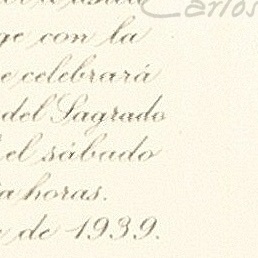 Carlos
con la
celebrará
del Sagrado
el sábado
horas.
de 1939.